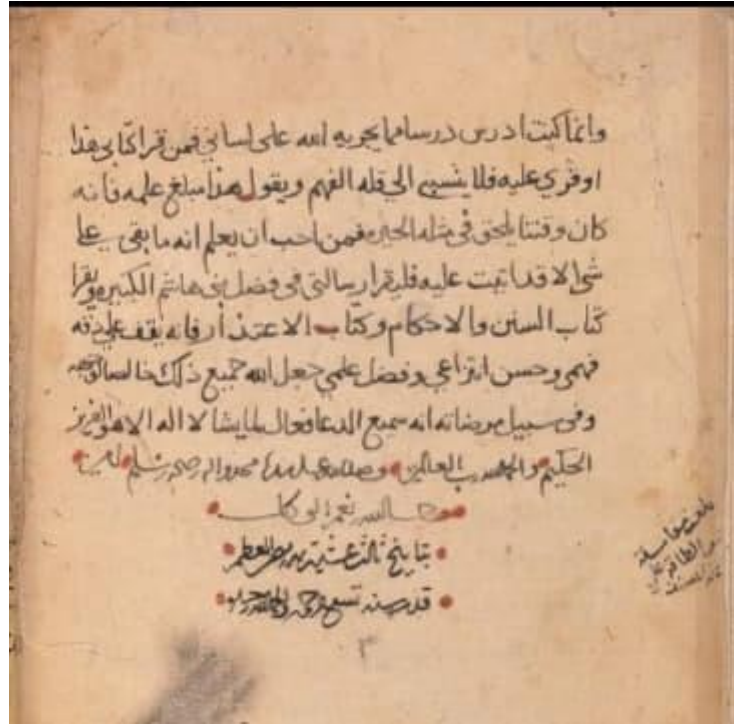 وانما كنت ادرس درسا مما يجريه الله على لساني فمن قرا كتابي هذا
او قري عليه فلا ينسبني الى قله الفهم ويقول هذا مبلغ علمه فانه
كان وقتنا يلحق في مثله الحيره فمن احب ان يعلم انه ما بقي علي
شي الا قد اتيت عليه فليقرا رسالتي في فضل بني هاشم الكبيره ويقرا
كتاب السنن والاحكام وكتاب الاعتذار فانه يقف على دقه
فهمي وحسن انتزاعي وفضل علمي جعل الله جميع ذلك خالصا لوجهه
وفي سبيل مرضاته انه سميع الدعا فعال لما يشا لا اله الا هو العزيز
الحكيم والحمد لله رب العالمين وصلى الله على سيدنا محمد واله وصحبه وسلم
حسبنا الله ونعم الوكيل
بتاريخ ثالث
سنه تسع